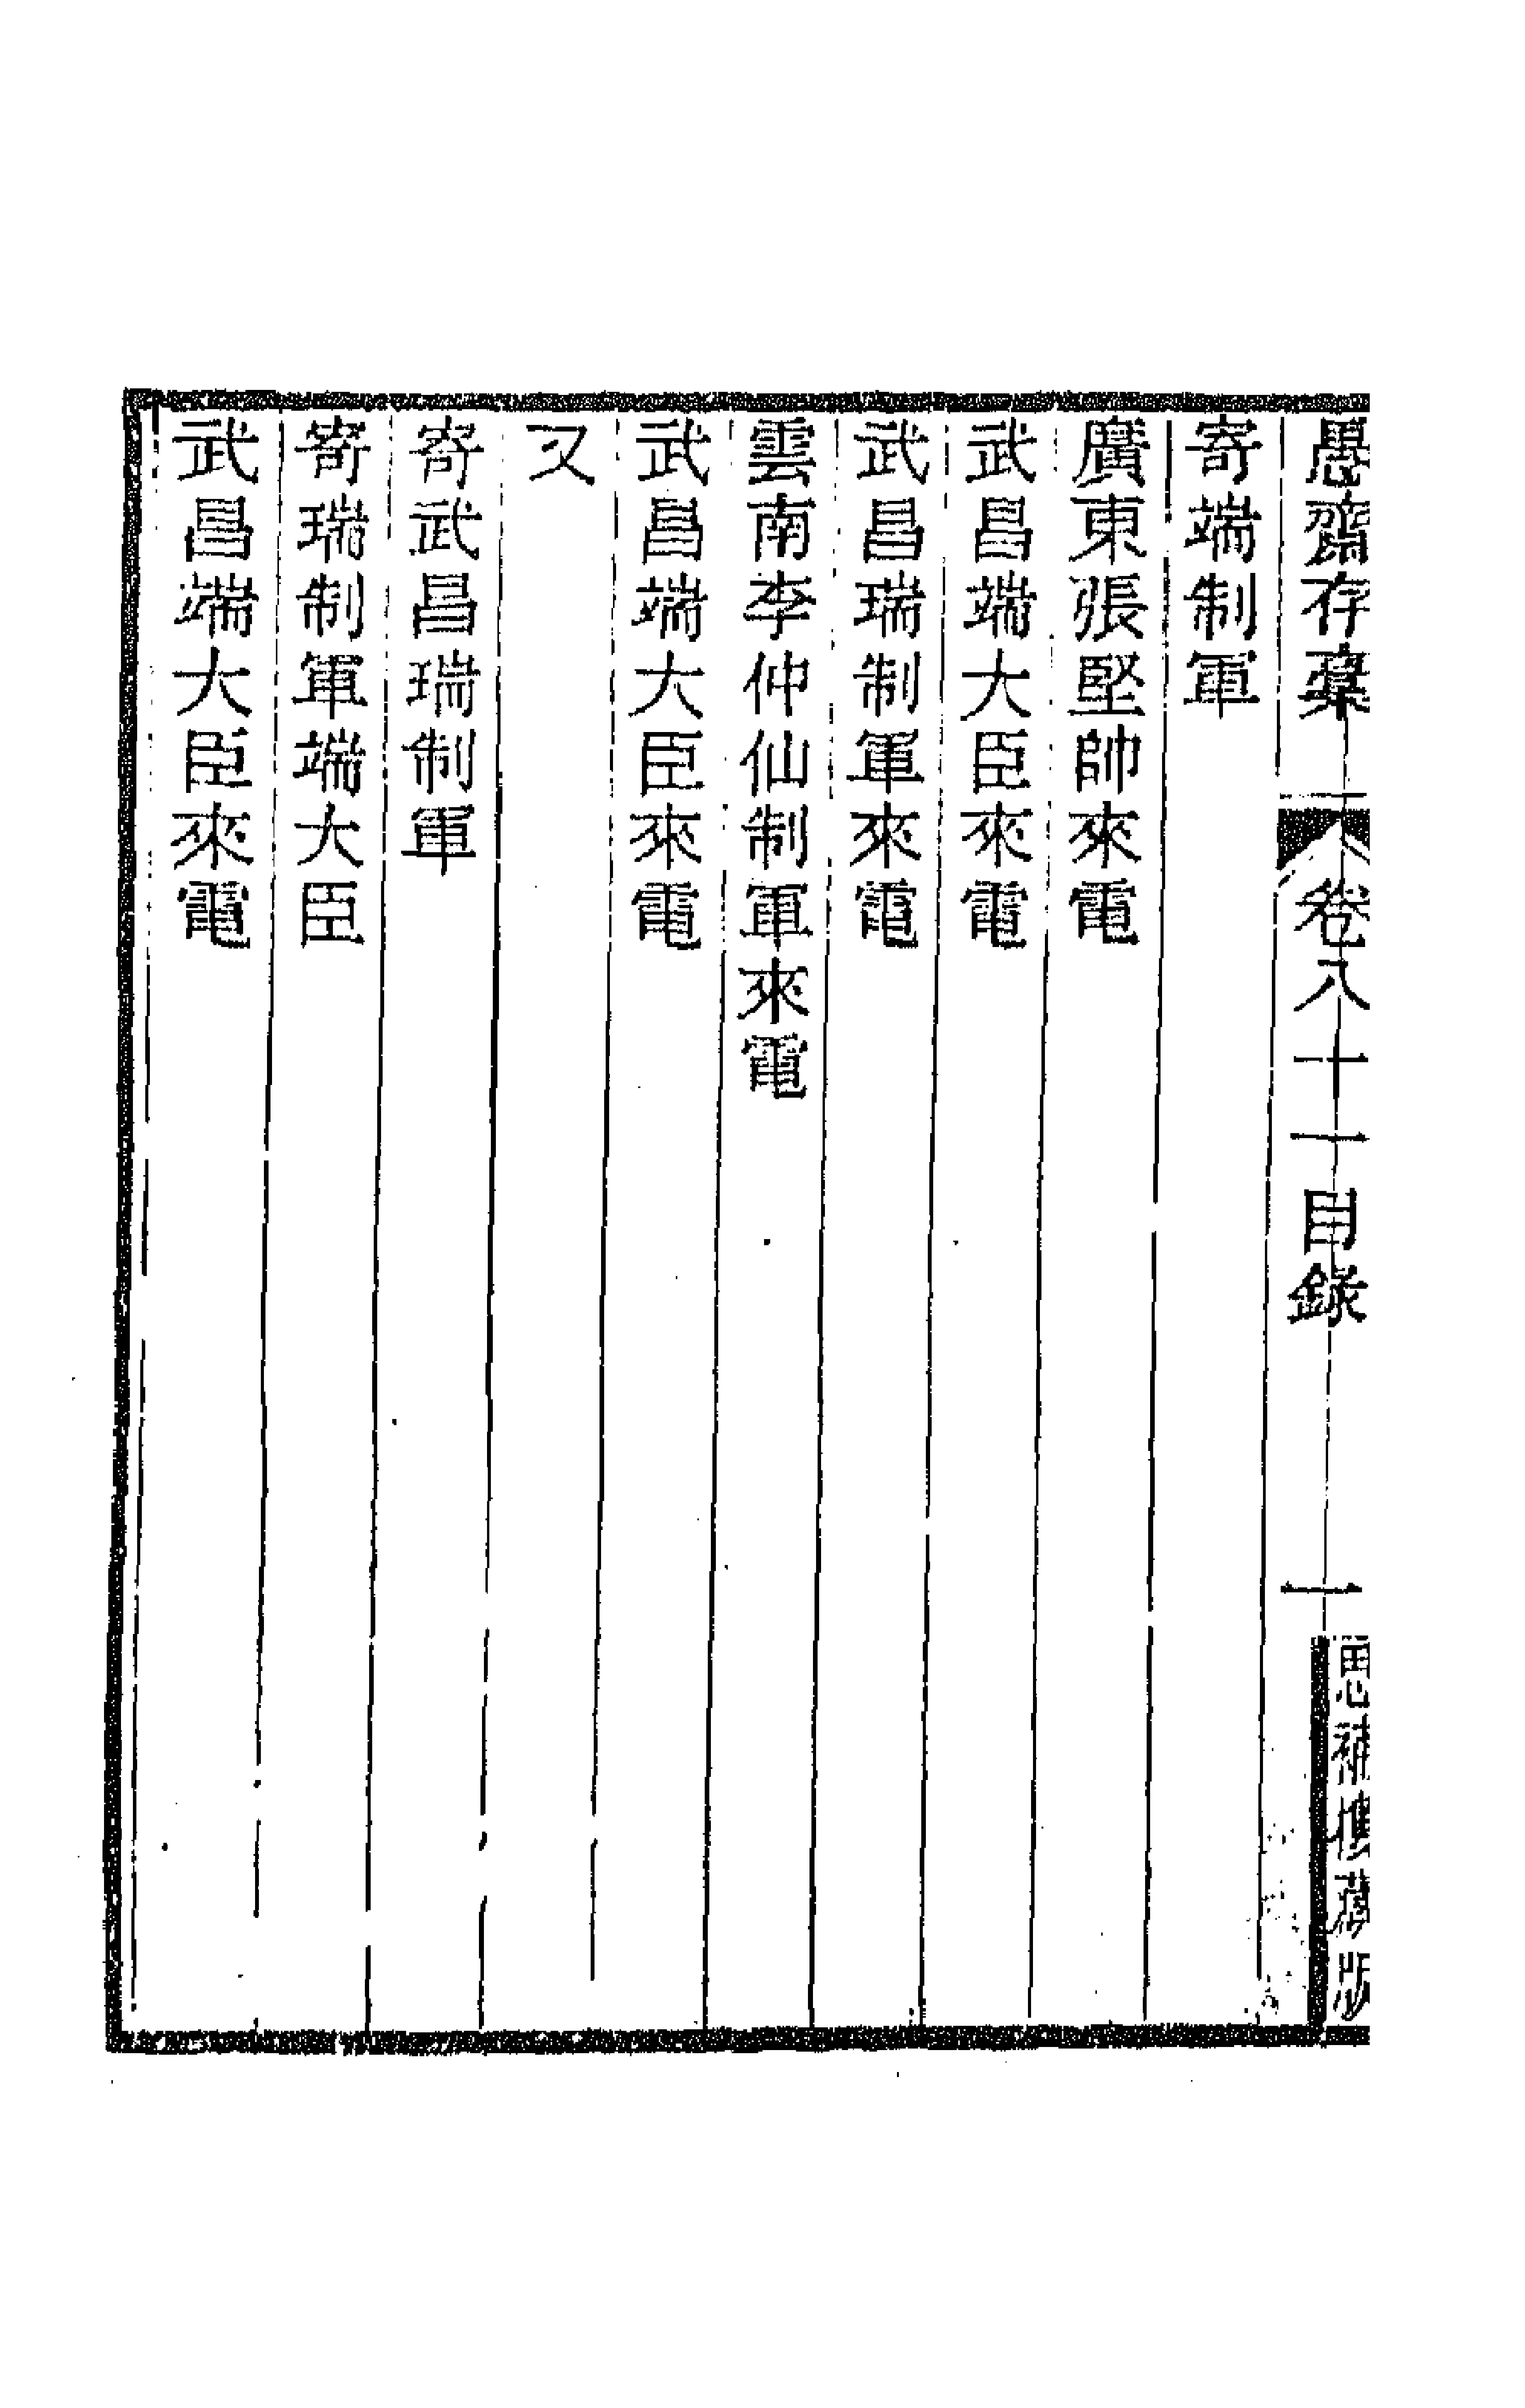 愚齋存稾
卷八十一目錄
一
思補樓藏版
寄端制軍
廣東張堅帥來電
武昌端大臣來電
武昌瑞制軍來電
雲南李仲仙制軍來電
武昌端大臣來電
又
寄武昌瑞制軍
寄瑞制軍端大臣
武昌端大臣來電